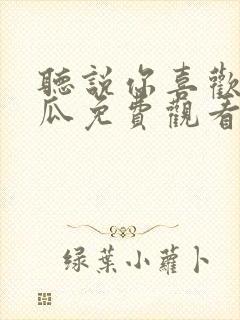 聽說你喜歡
瓜免費觀看
绿葉小蘿卜